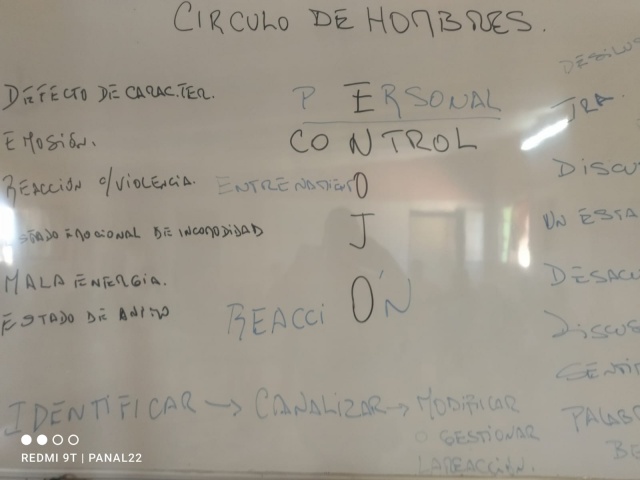 CIRCULO DE HOMBRES.
DEFECTO DE CARACTER.
EMOSIÓN.
REACCIÓN C/VIOLENCIA.
ESTADO EMOCIONAL DE INCOMODIDAD
MALA ENERGIA.
ESTADO DE ANIMO
PERSONAL
CONTROL
ENTRENAMIENTO
J
REACCIÓN
DESILUS
IRA.
DISCU
UN ESTA
DESACU
DISCUS
SENTI
PALABR
BE
IDENTIFICAR → CANALIZAR → MODIFICAR
O GESTIONAR
LA REACCIÓN.
REDMI 9T | PANAL22